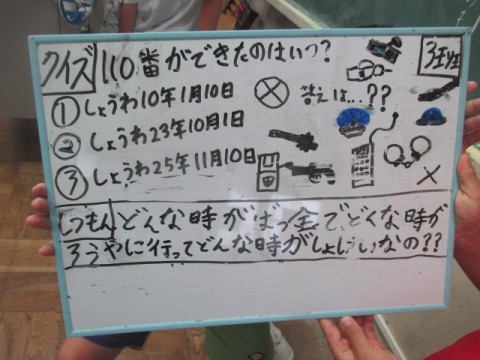 クイズ 110番ができたのはいつ? 3班
① しょうわ10年1月10日
答えは…??
② しょうわ23年10月1日
③ しょうわ25年11月10日
しつもん どんな時がばっ金で、どんな時が
ろうやに行ってどんな時がしょけいなの??